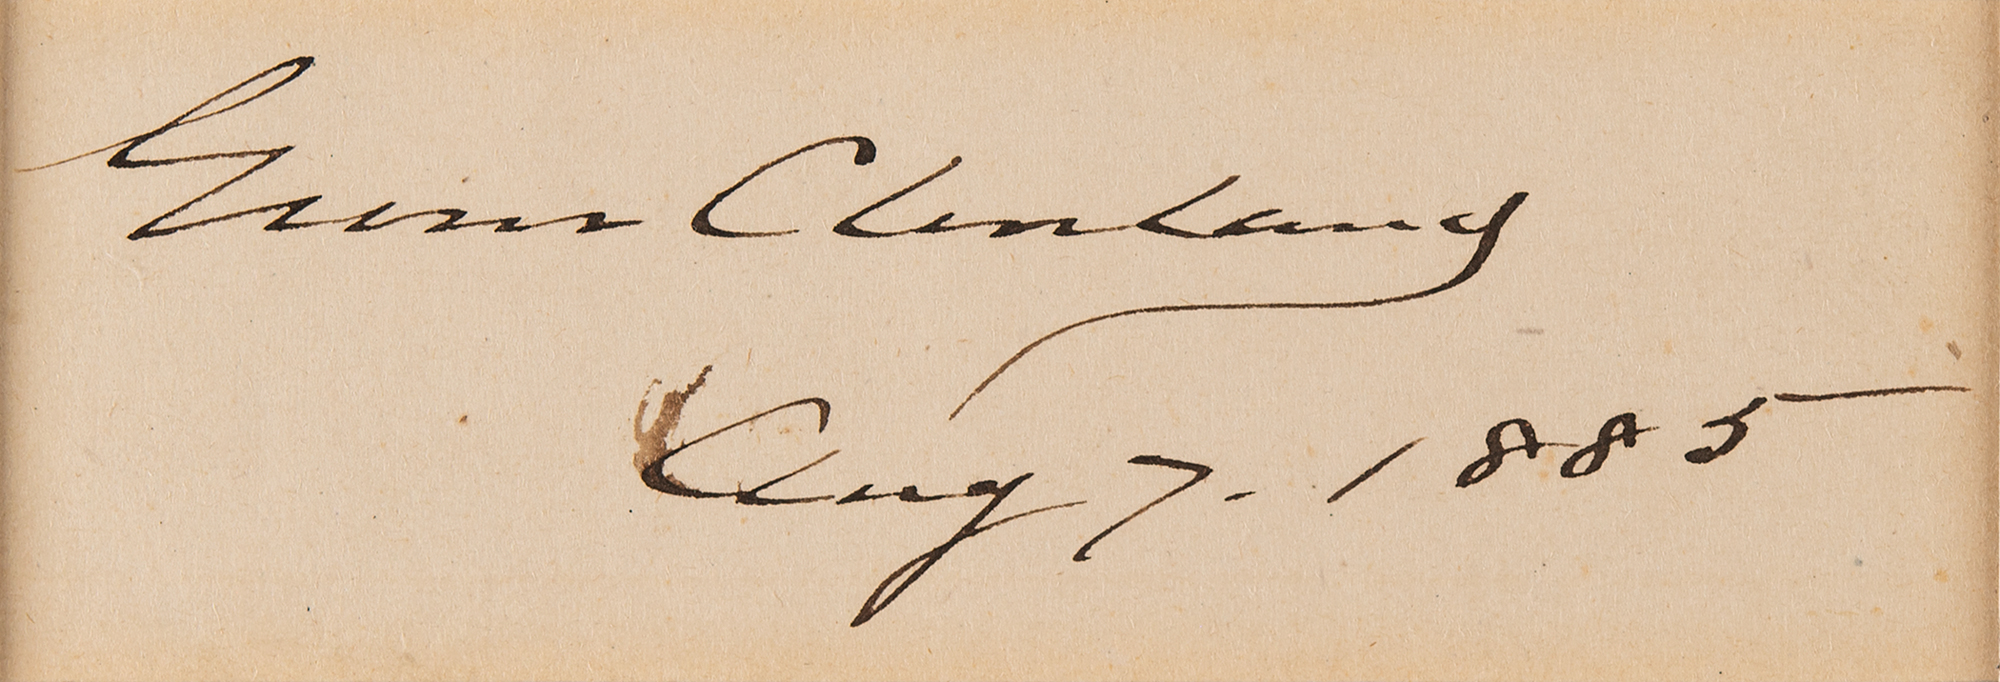 Grover Cleveland
Aug 7. 1885